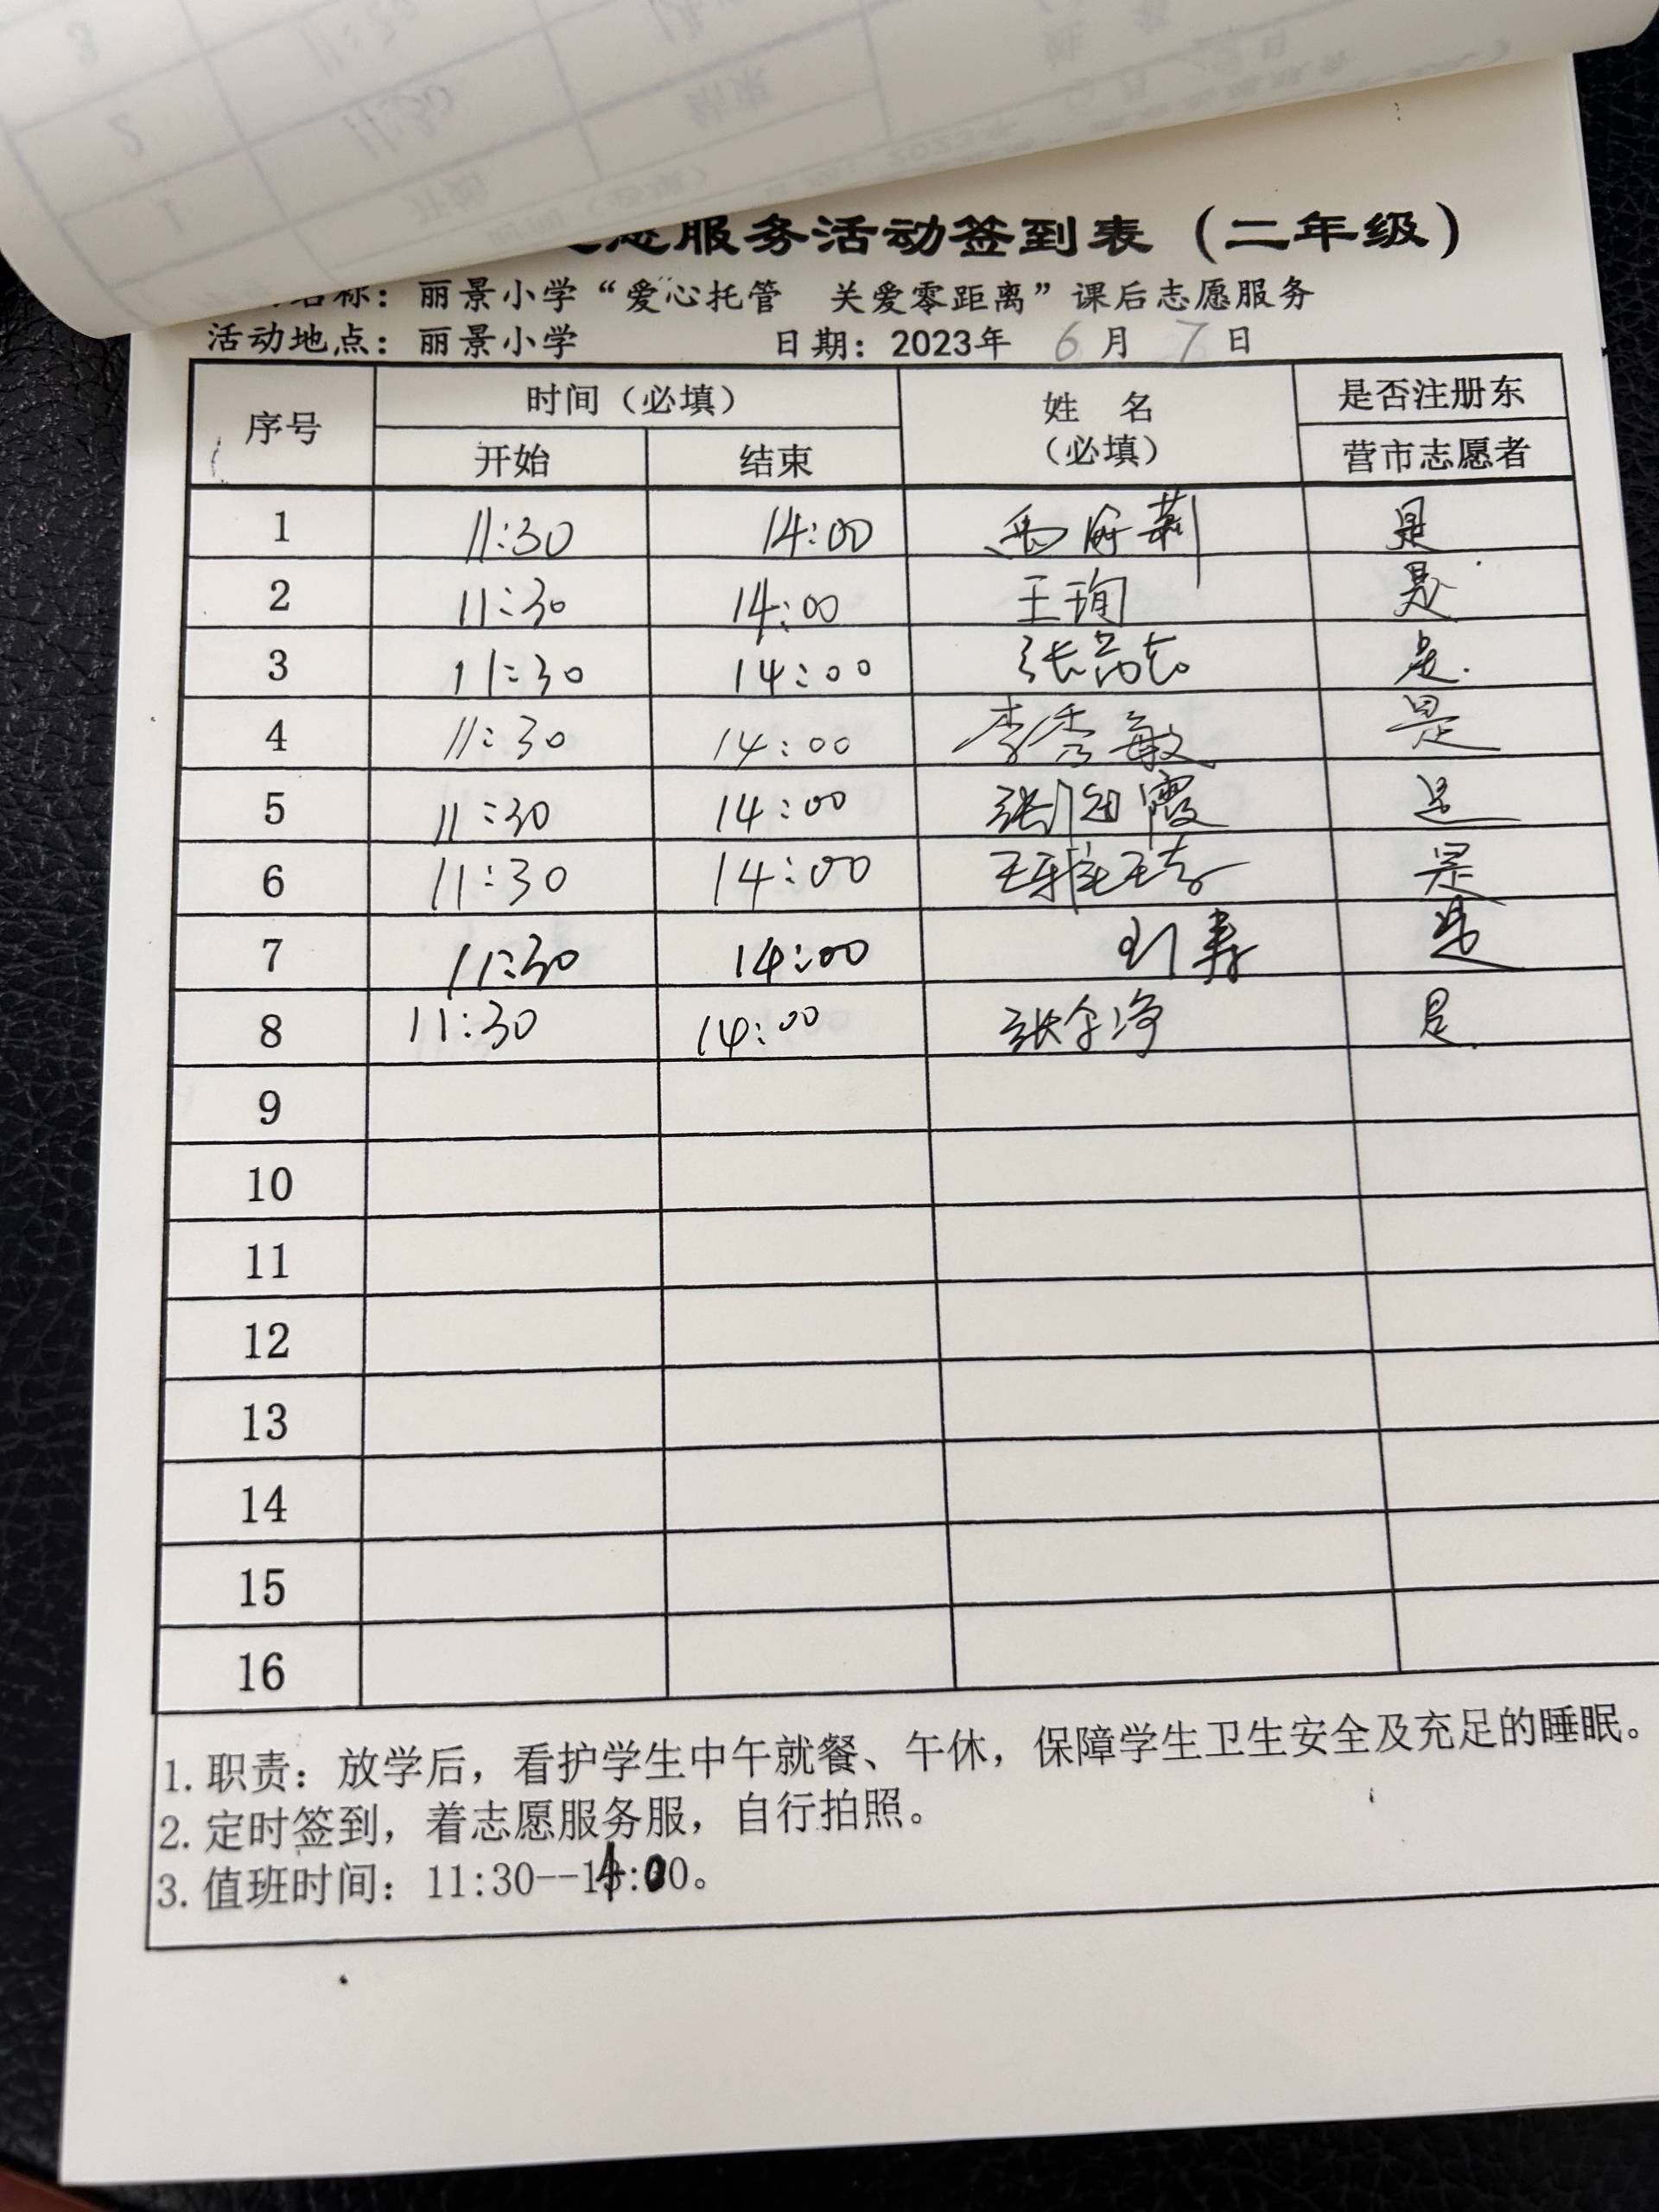 服务活动签到表（二年级）
名称：丽景小学“爱心托管 关爱零距离”课后志愿服务
活动地点：丽景小学 日期：2023年 6 月 7 日
序号 时间（必填） 姓 名 是否注册东
开始 结束 （必填） 营市志愿者
1 11:30 14:00 是
2 11:30 14:00 王珣 是
3 11:30 14:00 张 是.
4 11:30 14:00 李秀敏 是
5 11:30 14:00 张 霞 是
6 11:30 14:00 是
7 11:30 14:00 刘寿 是
8 11:30 14:00 张 净 是.
9
10
11
12
13
14
15
16
1. 职责：放学后，看护学生中午就餐、午休，保障学生卫生安全及充足的睡眠。
2. 定时签到，着志愿服务服，自行拍照。
3. 值班时间：11:30--14:00。